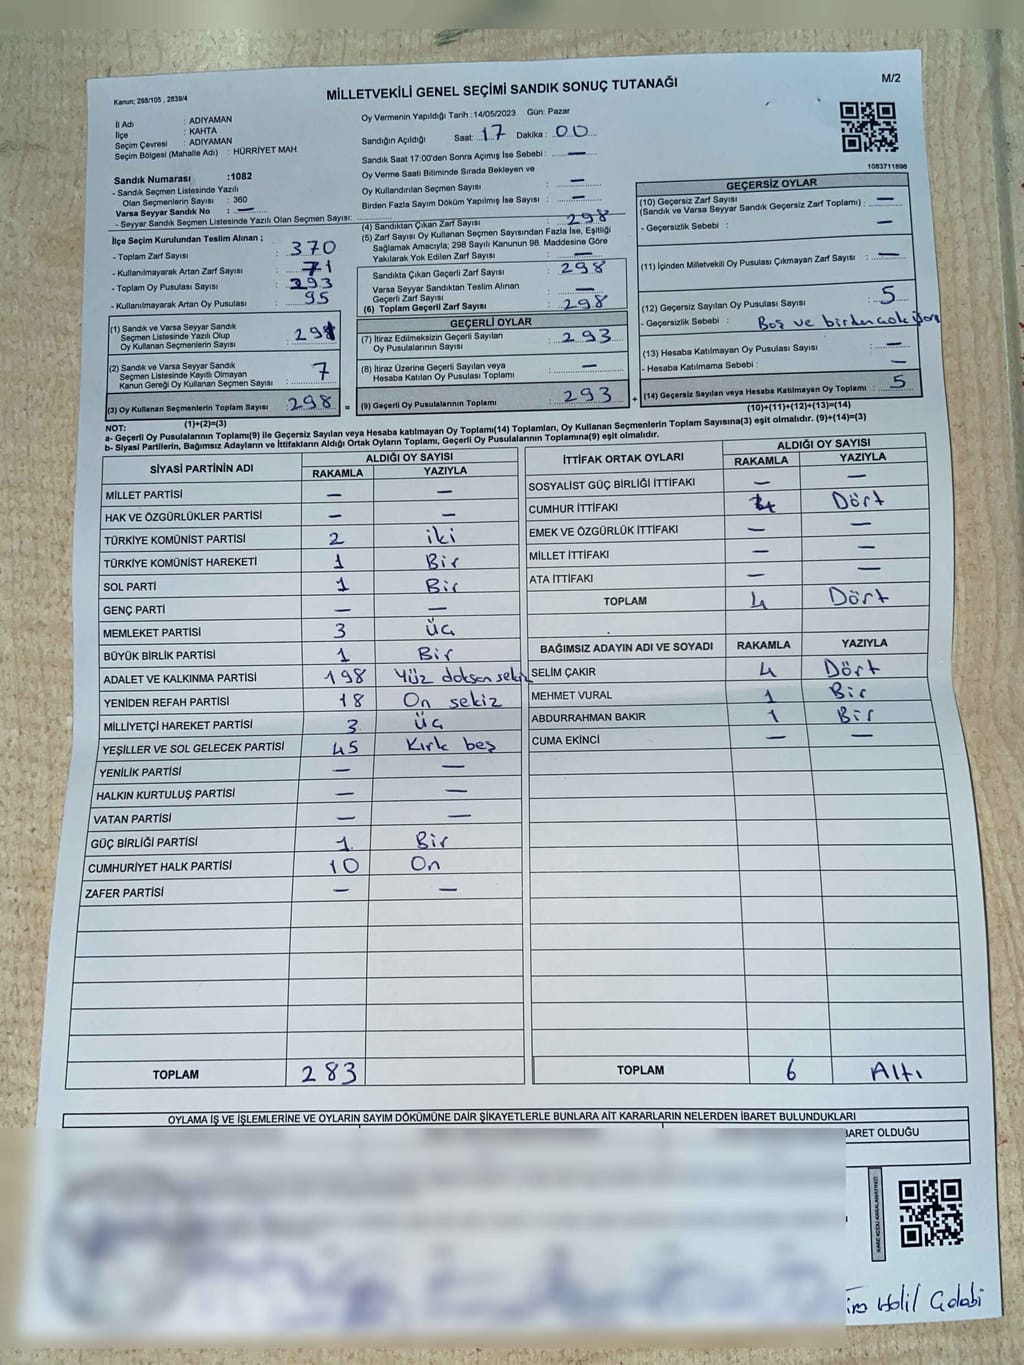 MİLLETVEKİLİ GENEL SEÇİMİ SANDIK SONUÇ TUTANAĞI
M/2
Kanun; 298/105 , 2839/4
İl Adı : ADIYAMAN
İlçe : KAHTA
Seçim Çevresi : ADIYAMAN
Seçim Bölgesi (Mahalle Adı) : HÜRRİYET MAH.
Sandık Numarası :1082
- Sandık Seçmen Listesinde Yazılı
Olan Seçmenlerin Sayısı : 360
Varsa Seyyar Sandık No : —
- Seyyar Sandık Seçmen Listesinde Yazılı Olan Seçmen Sayısı:
İlçe Seçim Kurulundan Teslim Alınan ;
- Toplam Zarf Sayısı : 370
- Kullanılmayarak Artan Zarf Sayısı : 71
- Toplam Oy Pusulası Sayısı : 393
- Kullanılmayarak Artan Oy Pusulası : 95
(1) Sandık ve Varsa Seyyar Sandık
Seçmen Listesinde Yazılı Olup
Oy Kullanan Seçmenlerin Sayısı : 291
(2) Sandık ve Varsa Seyyar Sandık
Seçmen Listesinde Kayıtlı Olmayan
Kanun Gereği Oy Kullanan Seçmen Sayısı : 7
(3) Oy Kullanan Seçmenlerin Toplam Sayısı : 298 =
(1)+(2)=(3)
Oy Vermenin Yapıldığı Tarih :14/05/2023 Gün: Pazar
Sandığın Açıldığı Saat: 17 Dakika: 00
Sandık Saat 17:00'den Sonra Açımış İse Sebebi : —
Oy Verme Saati Bitiminde Sırada Bekleyen ve
Oy Kullandırılan Seçmen Sayısı : —
Birden Fazla Sayım Döküm Yapılmış İse Sayısı : —
(4) Sandıktan Çıkan Zarf Sayısı : 298
(5) Zarf Sayısı Oy Kullanan Seçmen Sayısından Fazla İse, Eşitliği
Sağlamak Amacıyla; 298 Sayılı Kanunun 98. Maddesine Göre
Yakılarak Yok Edilen Zarf Sayısı : —
Sandıkta Çıkan Geçerli Zarf Sayısı : 298
Varsa Seyyar Sandıktan Teslim Alınan
Geçerli Zarf Sayısı : —
(6) Toplam Geçerli Zarf Sayısı : 298
GEÇERLİ OYLAR
(7) İtiraz Edilmeksizin Geçerli Sayılan
Oy Pusulalarının Sayısı : 293
(8) İtiraz Üzerine Geçerli Sayılan veya
Hesaba Katılan Oy Pusulası Toplamı : —
(9) Geçerli Oy Pusulalarının Toplamı : 293 +
1083711898
GEÇERSİZ OYLAR
(10) Geçersiz Zarf Sayısı
(Sandık ve Varsa Seyyar Sandık Geçersiz Zarf Toplamı) : —
- Geçersizlik Sebebi : —
(11) İçinden Milletvekili Oy Pusulası Çıkmayan Zarf Sayısı : —
(12) Geçersiz Sayılan Oy Pusulası Sayısı : 5
- Geçersizlik Sebebi : Boş ve birden çok
(13) Hesaba Katılmayan Oy Pusulası Sayısı : —
- Hesaba Katılmama Sebebi : —
(14) Geçersiz Sayılan veya Hesaba Katılmayan Oy Toplamı : 5
(10)+(11)+(12)+(13)=(14)
NOT:
a- Geçerli Oy Pusulalarının Toplamı(9) ile Geçersiz Sayılan veya Hesaba katılmayan Oy Toplamı(14) Toplamları, Oy Kullanan Seçmenlerin Toplam Sayısına(3) eşit olmalıdır. (9)+(14)=(3)
b- Siyasi Partilerin, Bağımsız Adayların ve İttifakların Aldığı Ortak Oyların Toplamı, Geçerli Oy Pusulalarının Toplamına(9) eşit olmalıdır.
SİYASİ PARTİNİN ADI ALDIĞI OY SAYISI
RAKAMLA YAZIYLA
MİLLET PARTİSİ — —
HAK VE ÖZGÜRLÜKLER PARTİSİ — —
TÜRKİYE KOMÜNİST PARTİSİ 2 iki
TÜRKİYE KOMÜNİST HAREKETİ 1 Bir
SOL PARTİ 1 Bir
GENÇ PARTİ — —
MEMLEKET PARTİSİ 3 Üç
BÜYÜK BİRLİK PARTİSİ 1 Bir
ADALET VE KALKINMA PARTİSİ 198 Yüz doksan sekiz
YENİDEN REFAH PARTİSİ 18 On sekiz
MİLLİYETÇİ HAREKET PARTİSİ 3 Üç
YEŞİLLER VE SOL GELECEK PARTİSİ 45 Kırk beş
YENİLİK PARTİSİ — —
HALKIN KURTULUŞ PARTİSİ — —
VATAN PARTİSİ — —
GÜÇ BİRLİĞİ PARTİSİ 1 Bir
CUMHURİYET HALK PARTİSİ 10 On
ZAFER PARTİSİ — —
TOPLAM 283
İTTİFAK ORTAK OYLARI ALDIĞI OY SAYISI
RAKAMLA YAZIYLA
SOSYALIST GÜÇ BİRLİĞİ İTTİFAKI — —
CUMHUR İTTİFAKI 4 Dört
EMEK VE ÖZGÜRLÜK İTTİFAKI — —
MİLLET İTTİFAKI — —
ATA İTTİFAKI — —
TOPLAM 4 Dört
BAĞIMSIZ ADAYIN ADI VE SOYADI RAKAMLA YAZIYLA
SELİM ÇAKIR 4 Dört
MEHMET VURAL 1 Bir
ABDURRAHMAN BAKIR 1 Bir
CUMA EKİNCİ — —
TOPLAM 6 Altı
OYLAMA İŞ VE İŞLEMLERİNE VE OYLARIN SAYIM DÖKÜMÜNE DAİR ŞİKAYETLERLE BUNLARA AİT KARARLARIN NELERDEN İBARET BULUNDUKLARI
BARET OLDUĞU
KARE KODU KARALAMAYINIZ!
Halil